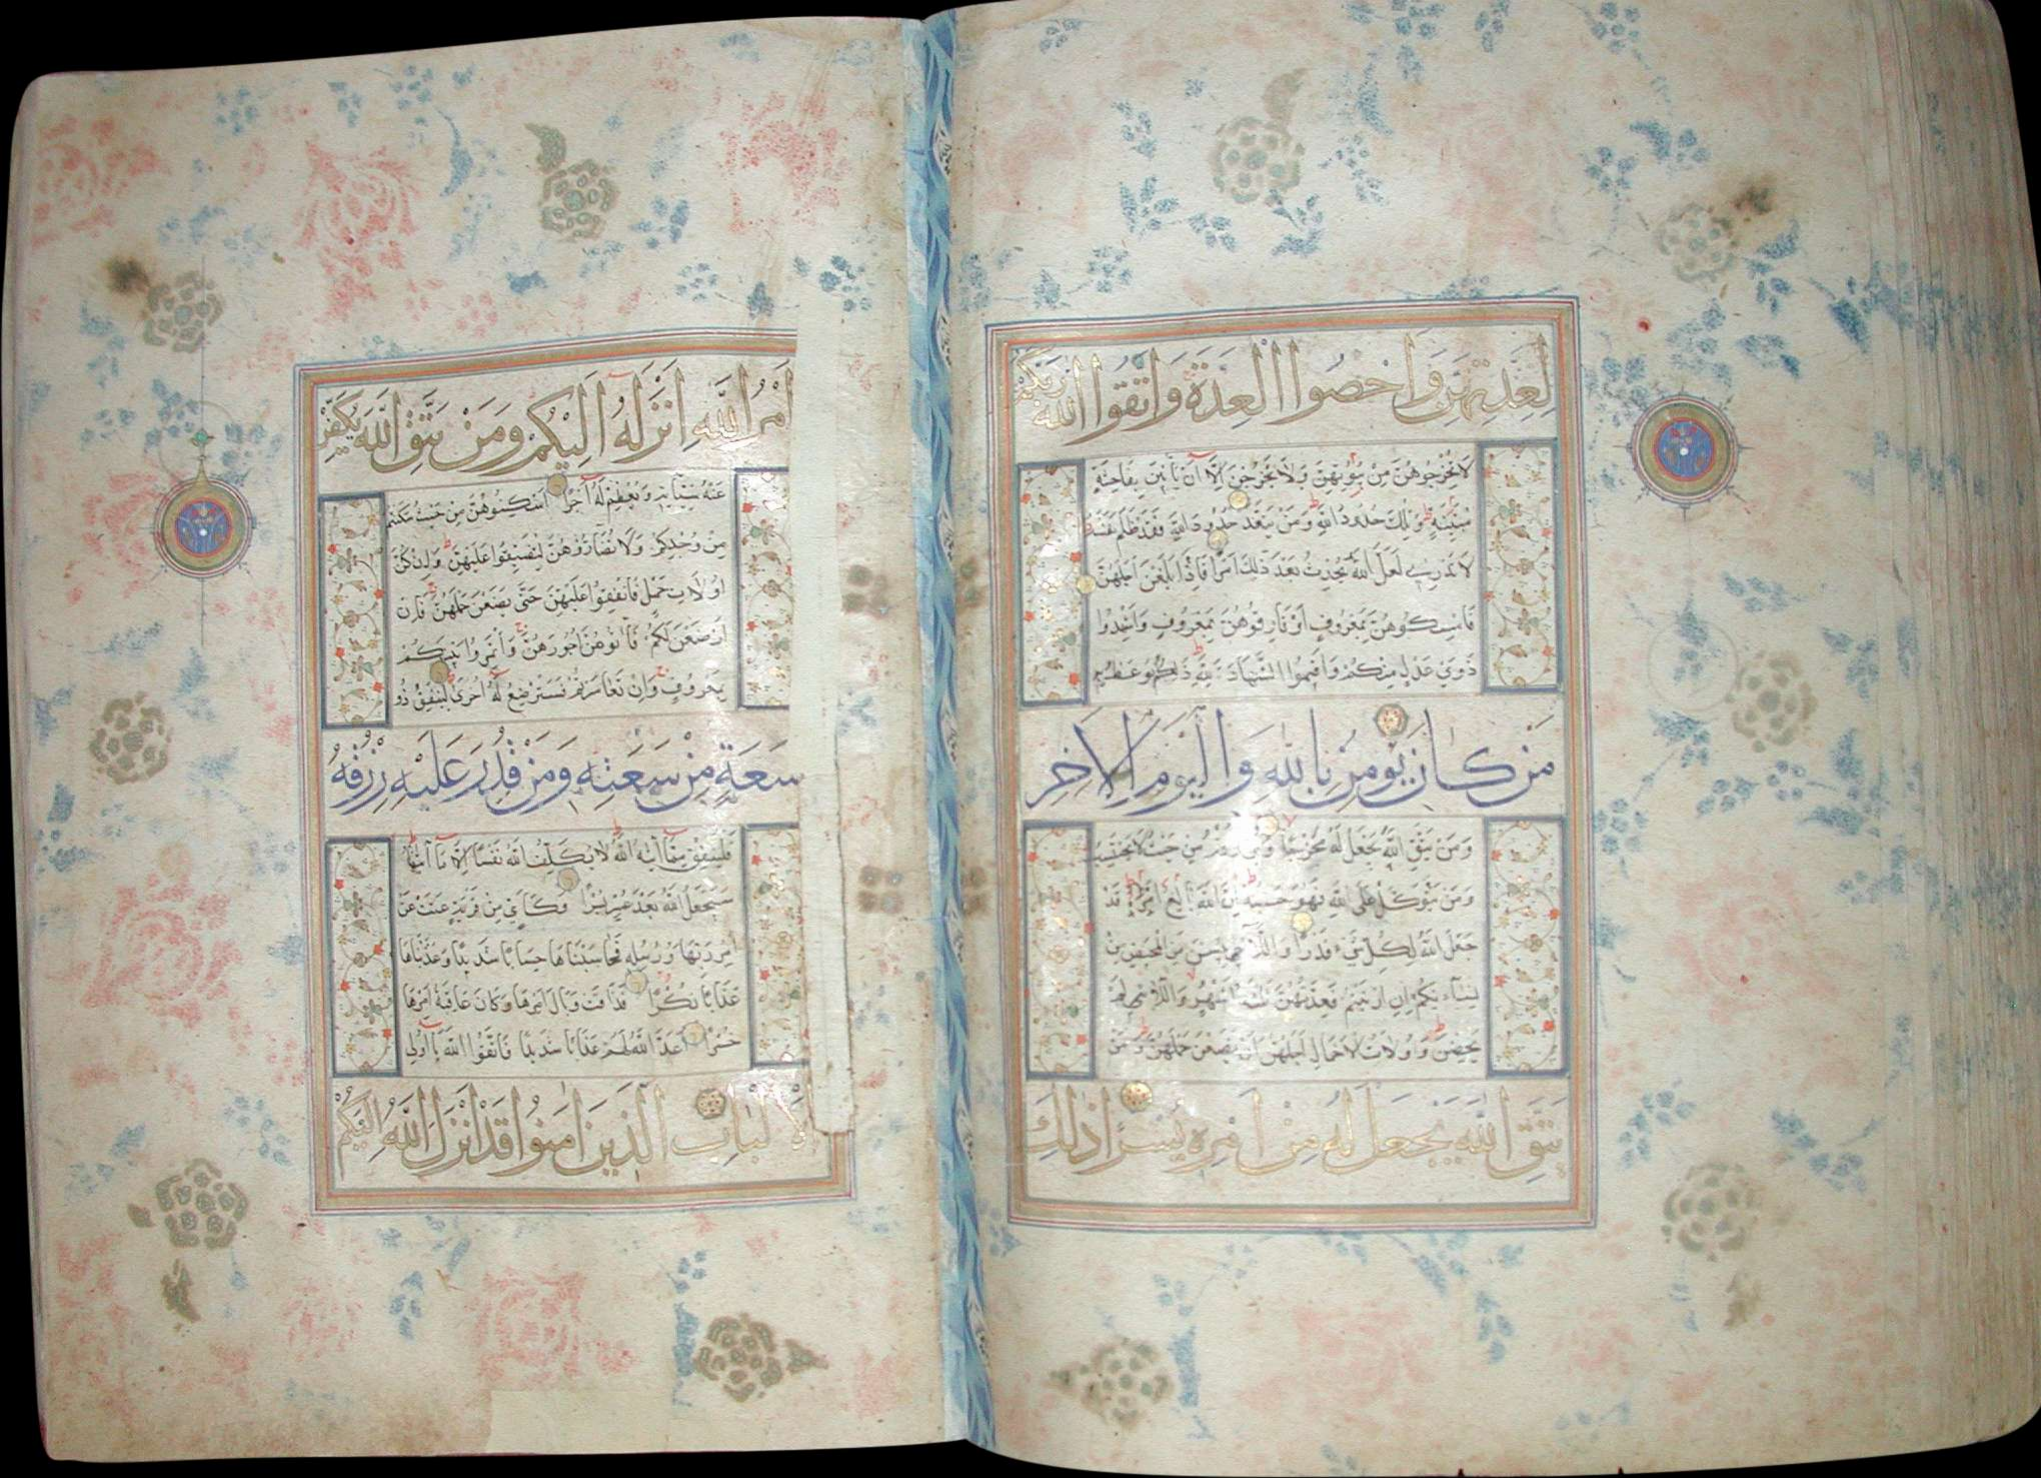 لِعِدَّتِهِنَّ وَاَحْصُوا الْعِدَّةَ وَاتَّقُوا اللّٰهَ رَبَّكُمْ
لَا تُخْرِجُوهُنَّ مِنْ بُيُوتِهِنَّ وَلَا يَخْرُجْنَ اِلَّٓا اَنْ يَأْتِينَ بِفَاحِشَةٍ
مُبَيِّنَةٍ وَتِلْكَ حُدُودُ اللّٰهِ وَمَنْ يَتَعَدَّ حُدُودَ اللّٰهِ فَقَدْ ظَلَمَ نَفْسَهُ
لَا تَدْرِي لَعَلَّ اللّٰهَ يُحْدِثُ بَعْدَ ذٰلِكَ اَمْرًا فَاِذَا بَلَغْنَ اَجَلَهُنَّ
فَاَمْسِكُوهُنَّ بِمَعْرُوفٍ اَوْ فَارِقُوهُنَّ بِمَعْرُوفٍ وَاَشْهِدُوا
ذَوَيْ عَدْلٍ مِنْكُمْ وَاَقِيمُوا الشَّهَادَةَ لِلّٰهِ ذٰلِكُمْ يُوعَظُ بِهِ
مَنْ كَانَ يُؤْمِنُ بِاللّٰهِ وَالْيَوْمِ الْاٰخِرِ
وَمَنْ يَتَّقِ اللّٰهَ يَجْعَلْ لَهُ مَخْرَجًا وَيَرْزُقْهُ مِنْ حَيْثُ لَا يَحْتَسِبُ
وَمَنْ يَتَوَكَّلْ عَلَى اللّٰهِ فَهُوَ حَسْبُهُ اِنَّ اللّٰهَ بَالِغُ اَمْرِهِ قَدْ
جَعَلَ اللّٰهُ لِكُلِّ شَيْءٍ قَدْرًا وَاللَّٓائِي يَئِسْنَ مِنَ الْمَحِيضِ مِنْ
نِسَٓائِكُمْ اِنِ ارْتَبْتُمْ فَعِدَّتُهُنَّ ثَلٰثَةُ اَشْهُرٍ وَاللَّٓائِي لَمْ
يَحِضْنَ وَاُولَاتُ الْاَحْمَالِ اَجَلُهُنَّ اَنْ يَضَعْنَ حَمْلَهُنَّ وَمَنْ
يَتَّقِ اللّٰهَ يَجْعَلْ لَهُ مِنْ اَمْرِهِ يُسْرًا ذٰلِكَ
اَمْرُ اللّٰهِ اَنْزَلَهُ اِلَيْكُمْ وَمَنْ يَتَّقِ اللّٰهَ يُكَفِّرْ
عَنْهُ سَيِّاٰتِهِ وَيُعْظِمْ لَهُ اَجْرًا اَسْكِنُوهُنَّ مِنْ حَيْثُ سَكَنْتُمْ
مِنْ وُجْدِكُمْ وَلَا تُضَٓارُّوهُنَّ لِتُضَيِّقُوا عَلَيْهِنَّ وَاِنْ كُنَّ
اُولَاتِ حَمْلٍ فَاَنْفِقُوا عَلَيْهِنَّ حَتّٰى يَضَعْنَ حَمْلَهُنَّ فَاِنْ
اَرْضَعْنَ لَكُمْ فَاٰتُوهُنَّ اُجُورَهُنَّ وَأْتَمِرُوا بَيْنَكُمْ
بِمَعْرُوفٍ وَاِنْ تَعَاسَرْتُمْ فَسَتُرْضِعُ لَهُ اُخْرٰى لِيُنْفِقْ ذُو
سَعَةٍ مِنْ سَعَتِهِ وَمَنْ قُدِرَ عَلَيْهِ رِزْقُهُ
فَلْيُنْفِقْ مِمَّٓا اٰتٰيهُ اللّٰهُ لَا يُكَلِّفُ اللّٰهُ نَفْسًا اِلَّا مَٓا اٰتٰيهَا
سَيَجْعَلُ اللّٰهُ بَعْدَ عُسْرٍ يُسْرًا وَكَاَيِّنْ مِنْ قَرْيَةٍ عَتَتْ عَنْ
اَمْرِ رَبِّهَا وَرُسُلِهِ فَحَاسَبْنَاهَا حِسَابًا شَدِيدًا وَعَذَّبْنَاهَا
عَذَابًا نُكْرًا فَذَاقَتْ وَبَالَ اَمْرِهَا وَكَانَ عَاقِبَةُ اَمْرِهَا
خُسْرًا اَعَدَّ اللّٰهُ لَهُمْ عَذَابًا شَدِيدًا فَاتَّقُوا اللّٰهَ يَٓا اُولِي
الْاَلْبَابِ الَّذِينَ اٰمَنُوا قَدْ اَنْزَلَ اللّٰهُ اِلَيْكُمْ